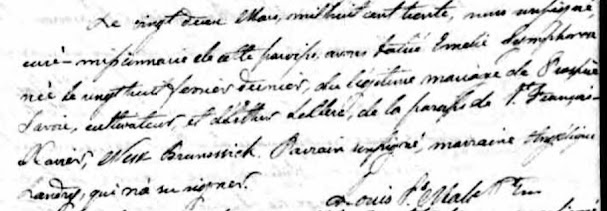 Le vingt deux Mars, mil huit cent trente, nous soussigné,
curé-missionnaire de cette paroisse, avons batisé Emelie
née le vingt huit fevrier dernier, du legitime mariage de
Savoie, cultivateur, et d'Esther de la paroisse de St. François
Xavier, New Brunssick. Parrain soussigné, marraine Angelique
Landry, qui n'a su signer.
Louis Ptre